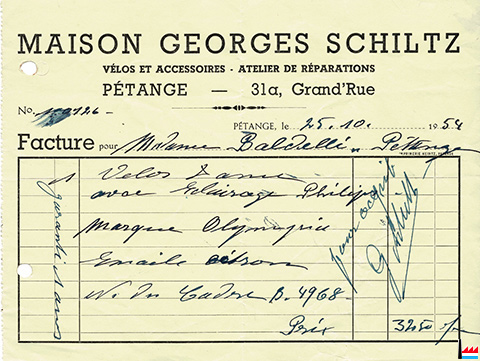 MAISON GEORGES SCHILTZ
VÉLOS ET ACCESSOIRES - ATELIER DE RÉPARATIONS
PÉTANGE — 31a, Grand'Rue
No.
PÉTANGE, le 25.10. 1954
Facture pour Madame Baldelli, Pétange
1 Vélos dame
avec éclairage Philips
marque Olympia
Emaile citron
No du Cadre B. 4968.
Prix 3250
garantie 1 ans
pour acquit
Schiltz